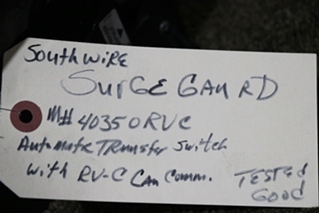 SouthWIRE
SurGE GAURD
M# 40350RVC
Automatic TRansfer Switch
With RV-C Can Comm.
TESTED
GOOD